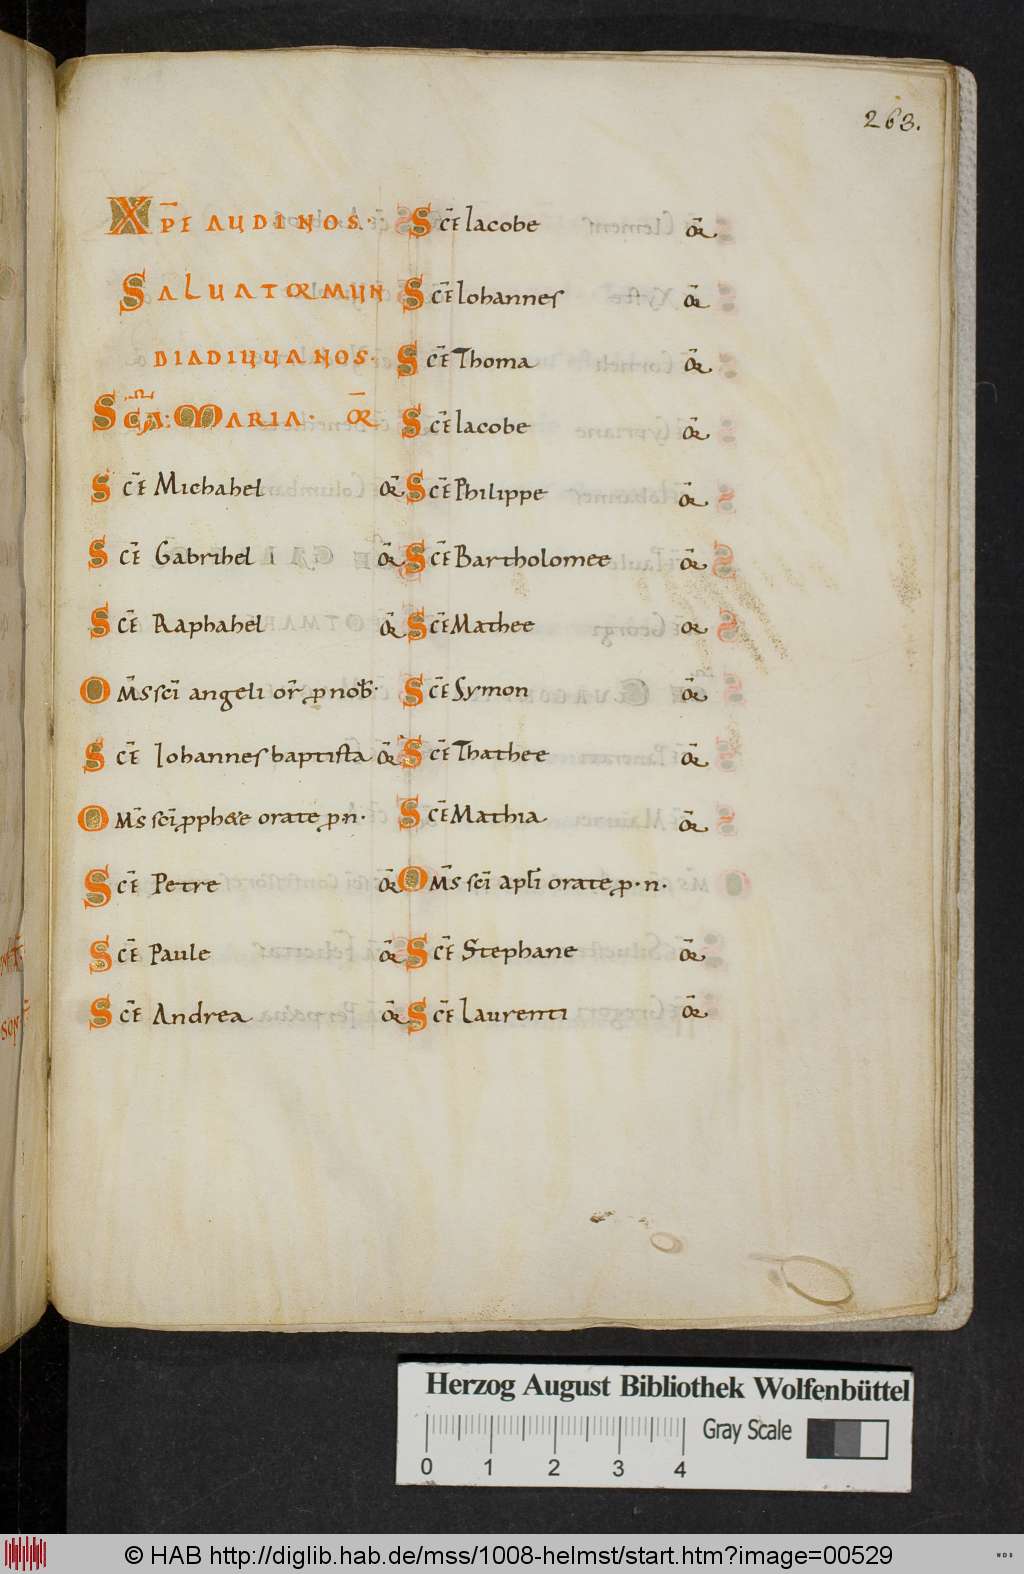 263.
XPE AUDI NOS·
SALUATOR MUN
DI ADIUUA NOS·
SCA MARIA· OR
SCE Michahel OR
SCE Gabrihel OR
SCE Raphahel OR
OMS sci angeli or p nob·
SCE Iohannes baptista OR
OMS sci pphete orate p·n·
SCE Petre OR
SCE Paule OR
SCE Andrea OR
SCE Iacobe OR
SCE Iohannes OR
SCE Thoma OR
SCE Iacobe OR
SCE Philippe OR
SCE Bartholomee OR
SCE Mathee OR
SCE Symon OR
SCE Thathee OR
SCE Mathia OR
OMS sci apli orate p·n·
SCE Stephane OR
SCE Laurenti OR
Herzog August Bibliothek Wolfenbüttel
Gray Scale
0 1 2 3 4
© HAB http://diglib.hab.de/mss/1008-helmst/start.htm?image=00529